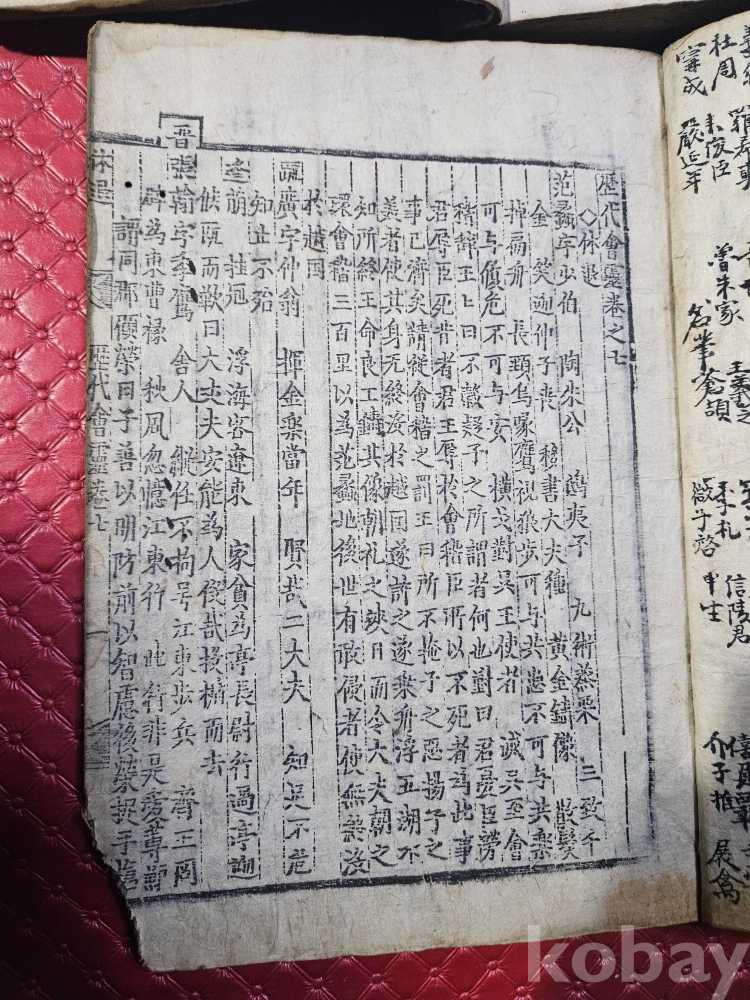 杜周 羅希奭
甯成 嚴延年
曾朱家
名筆 蒼頡
季札 信陵君
微子啓 申生
介子推 展禽
歷代會靈卷之七
◇休退
范蠡字少伯 陶朱公 鴟夷子 九術蒸栗 三致千
金 移書大夫種 黃金鑄像 散髮
掉扁舟 長頸烏喙鷹視狼步可与共患不可与共樂
可与傎危不可与安 橫戈對吳王使者 滅吳至會
稽辞王王曰不糓疑子之所謂者何也對曰君憂臣勞
君辱臣死昔者君王辱於會稽臣所以不死者爲此事
事已濟矣請從會稽之罰王曰所不掩子之惡揚子之
美者使其身无終沒於越国遂許之遂乘舟浮五湖不
知所終王命良工鑄其像朝礼之浹日而令大夫朝之
環會稽三百里以爲范蠡地後世有敢侵者使無終沒
於越国
䟽廣字仲翁 揮金樂當年 賢哉二大夫 知足不危
知止不殆
逄萌 挂冠 浮海客遼東 家貧爲亭長尉行過亭迎
候既而歎曰大丈夫安能爲人役哉投楯而去
晋
張翰字季鷹 舍人 縱任不拘号江東步兵 齊王冏
辟爲東曹掾 秋風忽憶江東行 此行非是愛蓴鱸
謂同郡顧榮曰子善以明防前以智慮後榮捉手愴
休退 歷代會靈卷七
kobay